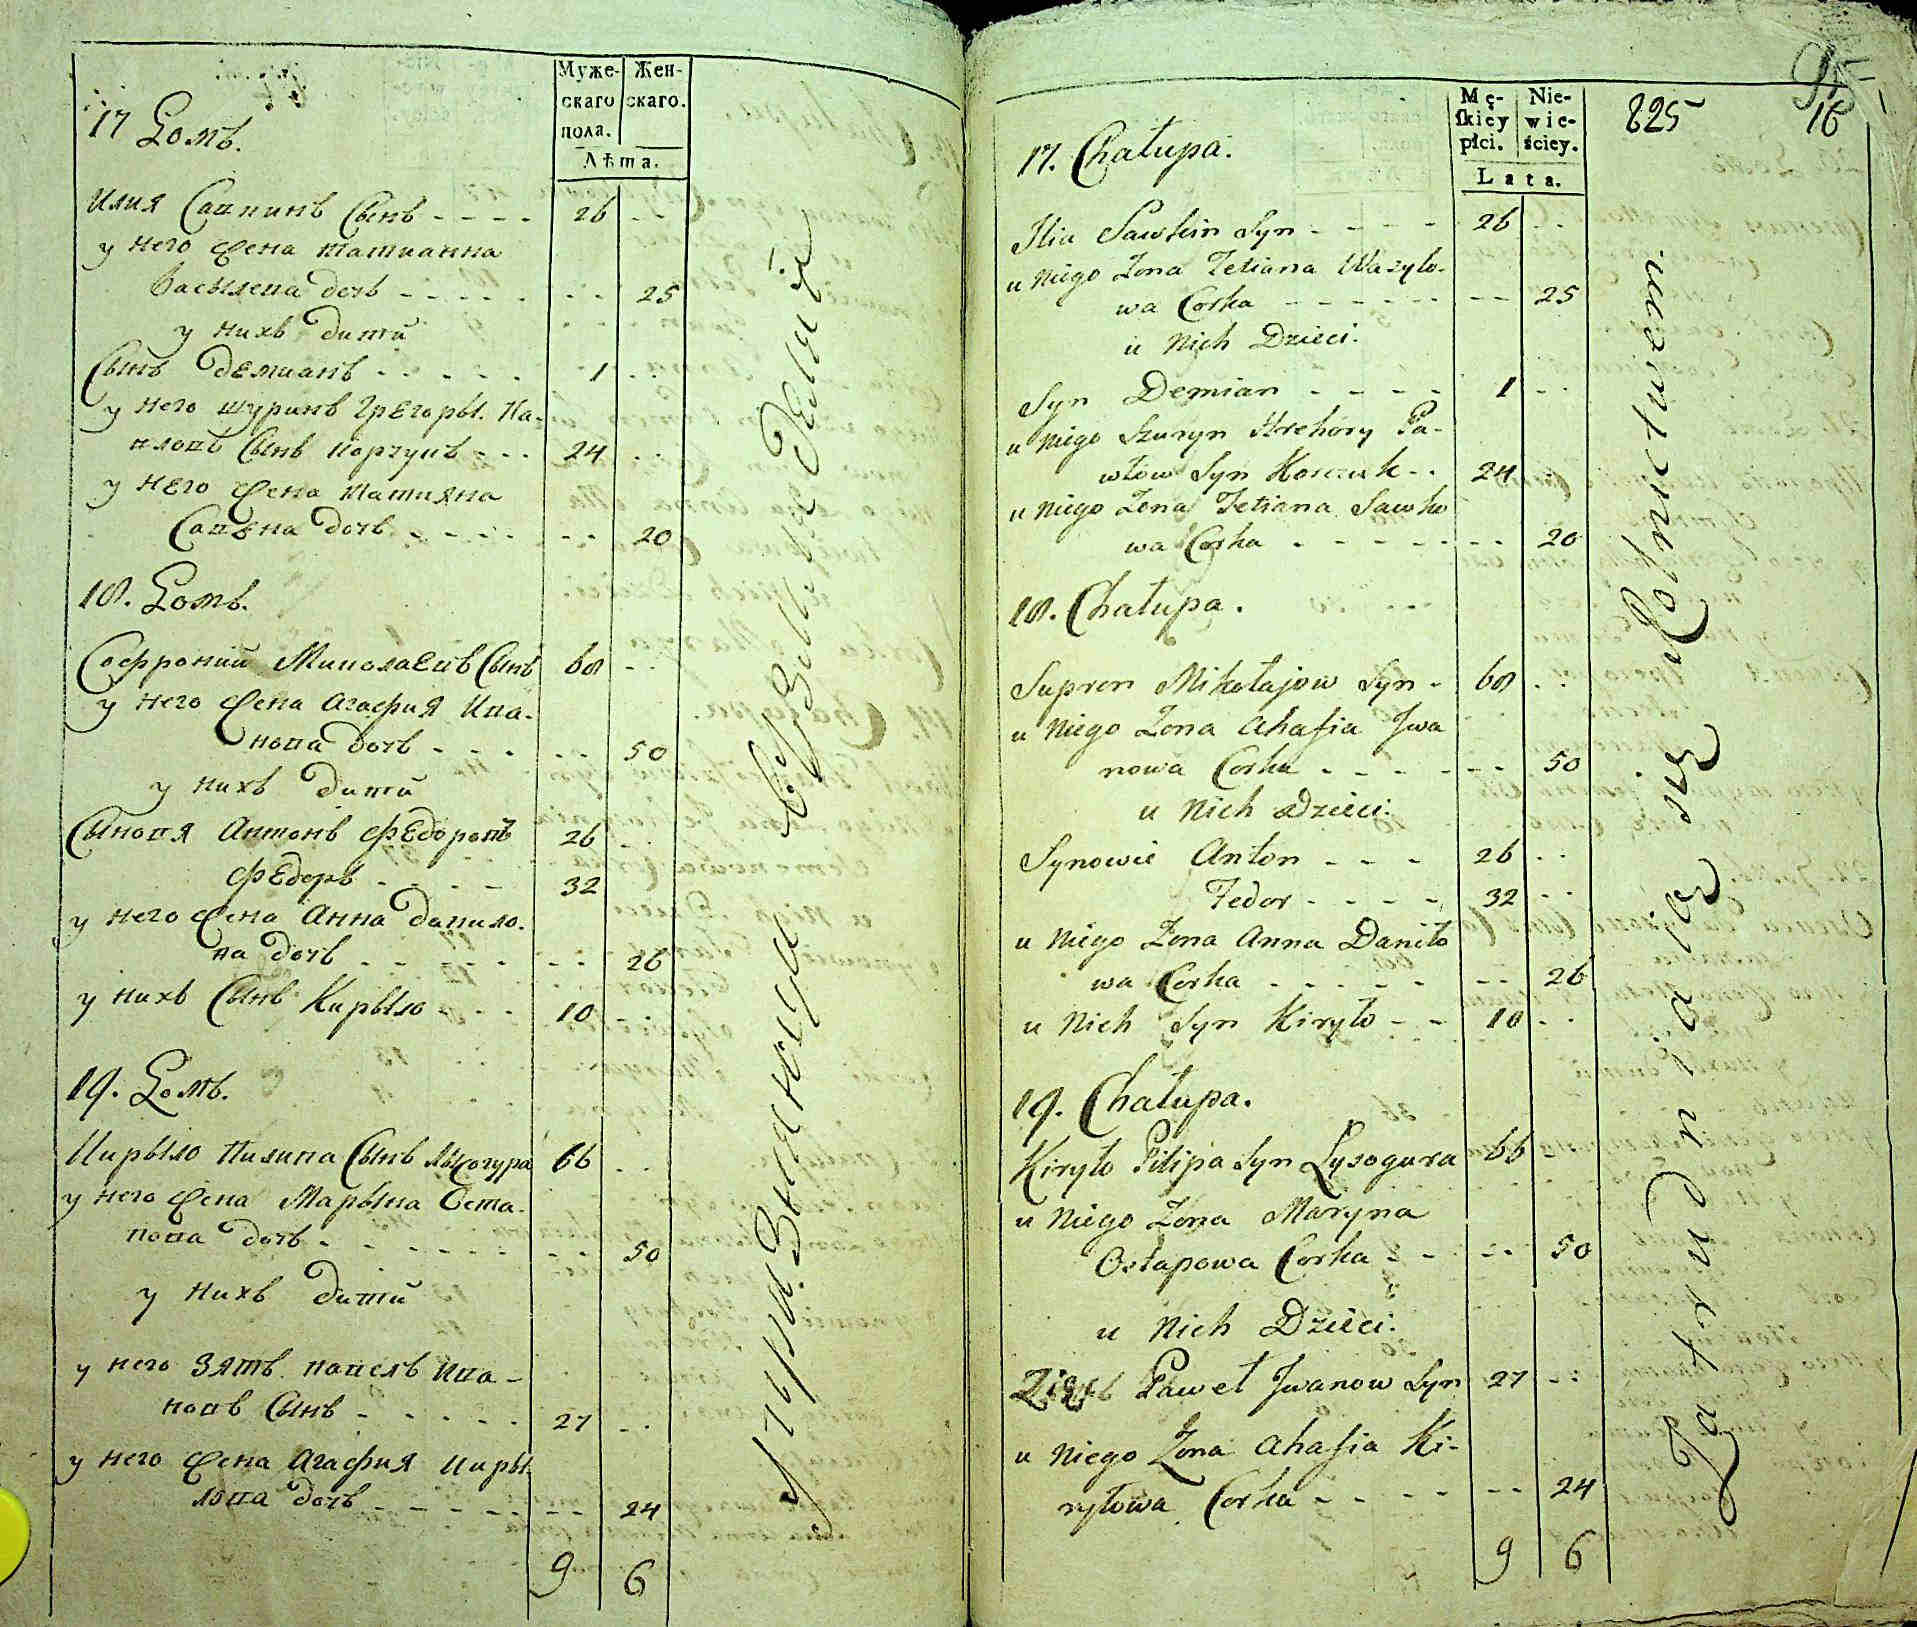 Муже-
скаго
пола.
Жен-
скаго.
Лѣта.
17 Домъ.
Илия Савкинъ Сынъ - - - - 26 - -
у него жена татианна
Васылева дочь - - - - - - - 25
у нихъ дити
Сынъ дЕмианъ - - - - - 1 - -
у него шуринъ ГрЕгоры. Па-
вловъ Сынъ Корчукъ - - - 24 - -
у нЕго жена татияна
Савкна дочь - - - - - - - 20
18. Домъ.
Софроний МиколаЕвъ Сынъ 68 - -
у него жена агафия Ива-
нова дочь - - - - - - 50
у нихъ дити
Сыновя антонъ фЕдоровъ 26 - -
фЕдоръ - - - - 32
у него жена Анна данило-
ва дочь - - - - - - - 26
у нихъ Сынъ Кирыло - - - 10 - -
19. Домъ.
Кирыло Пилипа Сынъ Лысогура 66 - -
у него жена Марына Оста-
пова дочь - - - - - - - - 50
у нихъ дити
у него Зять павелъ Ива-
новъ Сынъ - - - - - 27 - -
у него жена агафия Киры-
лова дочь - - - - - - - 24
9 6
Упражняющися въ Земледелие
Mę-
skiey
płci.
Nie-
wie-
ściey.
Lata.
825
95
16
17. Chałupa.
Ilia Sawkin Syn - - - - 26 - -
u Niego Zona Tetiana Wasyło-
wa Corka - - - - - - - - 25
u Nich Dzieci.
Syn Demian - - - - 1 - -
u Niego Szuryn Hrehory Pa-
włow Syn Korczuk - - 24
u Niego Zona Tetiana Sawko
wa Corka - - - - - - - 20
18. Chałupa.
Supron Mikołajow Syn - 68 - -
u Niego Zona Ahafia Jwa
nowa Corka - - - - - - - 50
u Nich Dzieci.
Synowie Anton - - - 26 - -
Fedor - - - - 32 - -
u Niego Zona Anna Daniło
wa Corka - - - - - - - 26
u Nich Syn Kiryło - - 10 - -
19. Chałupa.
Kiryło Pilipa Syn Lysogura 66 -
u Niego Zona Maryna
Ostapowa Corka - - - - 50
u Nich Dzieci.
Zięć Paweł Jwanow Syn 27 - -
u Niego Zona Ahafia Ki-
ryłowa Corka - - - - - - 24
9 6
Zatrudniaią się Rolnictwem